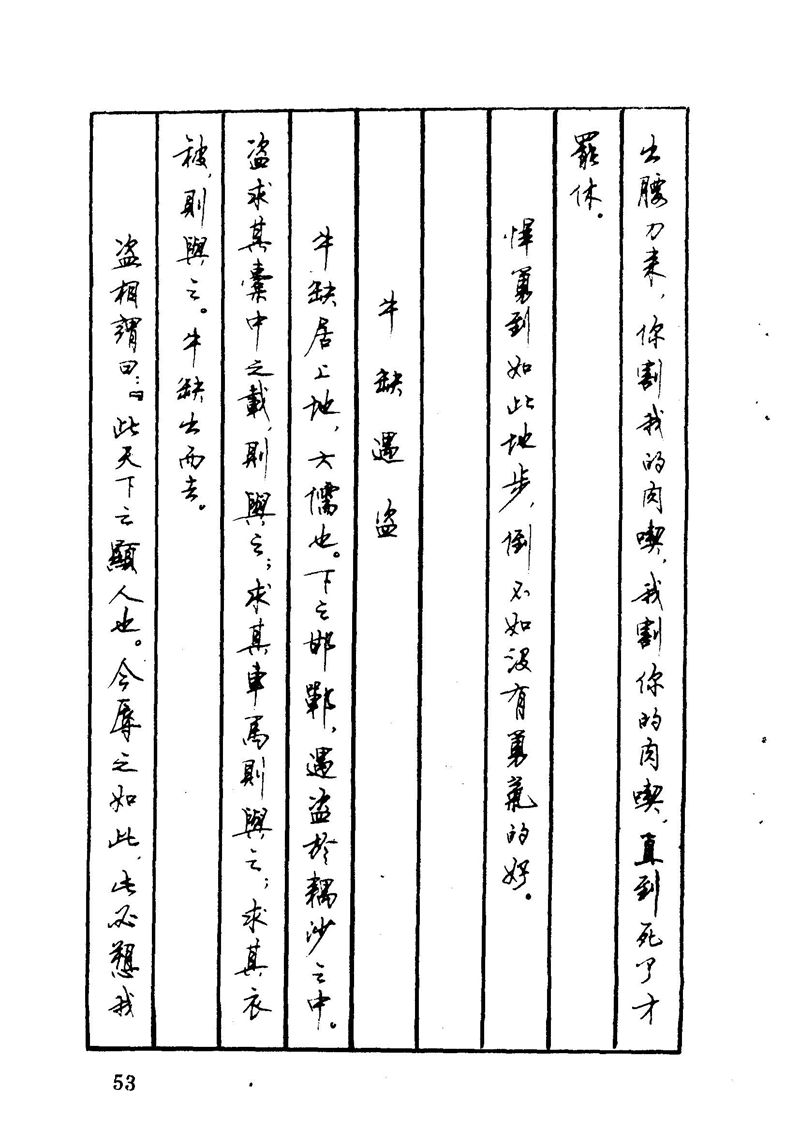 出腰刀来，你割我的肉喫，我割你的肉喫，直到死了才
罷休。
悍勇到如此地步，倒不如没有勇氣的好。
牛缺遇盗
牛缺居上地，大儒也。下之邯鄲，遇盗於耦沙之中。
盗求其橐中之載，則與之；求其車馬則與之；求其衣
被，則與之。牛缺出而去。
盗相謂曰：“此天下之顯人也。今辱之如此，此必愬我
53